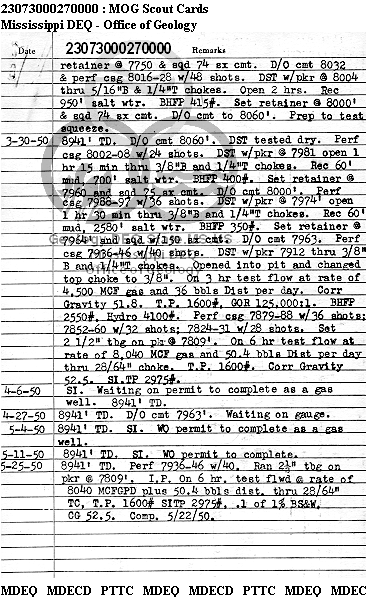 23073000270000 : MOG Scout Cards
Mississippi DEQ - Office of Geology
Date 23073000270000 Remarks
retainer @ 7750 & sqd 74 sx cmt. D/O cmt 8032
& perf csg 8016-28 w/48 shots. DST w/pkr @ 8004
thru 5/16"B & 1/4"T chokes. Open 2 hrs. Rec
950' salt wtr. BHFP 415#. Set retainer @ 8000'
& sqd 74 sx cmt. D/O cmt to 8060'. Prep to test
squeeze.
3-30-50 8941' TD. D/O cmt 8060'. DST tested dry. Perf
csg 8002-08 w/24 shots. DST w/pkr @ 7981 open 1
hr 15 min thru 3/8"B and 1/4"T chokes. Rec 60'
mud, 700' salt wtr. BHFP 400#. Set retainer @
7960 and sqd 75 sx cmt. D/O cmt 8000'. Perf
csg 7988-97 w/36 shots. DST w/pkr @ 7974' open
1 hr 30 min thru 3/8"B and 1/4"T chokes. Rec 60'
mud, 2580' salt wtr. BHFP 350#. Set retainer @
7964' and sqd w/150 sx cmt. D/O cmt 7963. Perf
csg 7936-46 w/40 shots. DST w/pkr 7912 thru 3/8"
B and 1/4"T chokes. Opened into pit and changed
top choke to 3/8". On 3 hr test flow at rate of
4,500 MCF gas and 36 bbls Dist per day. Corr
Gravity 51.8. T.P. 1600#, GOR 125,000:1. BHFP
2550#, Hydro 4100#. Perf csg 7879-88 w/36 shots;
7852-60 w/32 shots; 7824-31 w/28 shots. Set
2 1/2" tbg on pk @ 7809'. On 6 hr test flow at
rate of 8,040 MCF gas and 50.4 bbls Dist per day
thru 28/64" choke. T.P. 1600#. Corr Gravity
52.5. SI.TP 2975#.
4-6-50 SI. Waiting on permit to complete as a gas
well. 8941' TD.
4-27-50 8941' TD. D/O cmt 7963'. Waiting on gauge.
5-4-50 8941' TD. SI. WO permit to complete as a gas
well.
5-11-50 8941' TD. SI. WO permit to complete.
5-25-50 8941' TD. Perf 7936-46 w/40. Ran 2½" tbg on
pkr @ 7809'. I.P. On 6 hr. test flwd @ rate of
8040 MCFGPD plus 50.4 bbls dist. thru 28/64"
TC, T.P. 1600# SITP 2975#. .1 of 1% BS&W.
CG 52.5. Comp. 5/22/50.
MDEQ MDECD PTTC MDEQ MDECD PTTC MDEQ MDEC